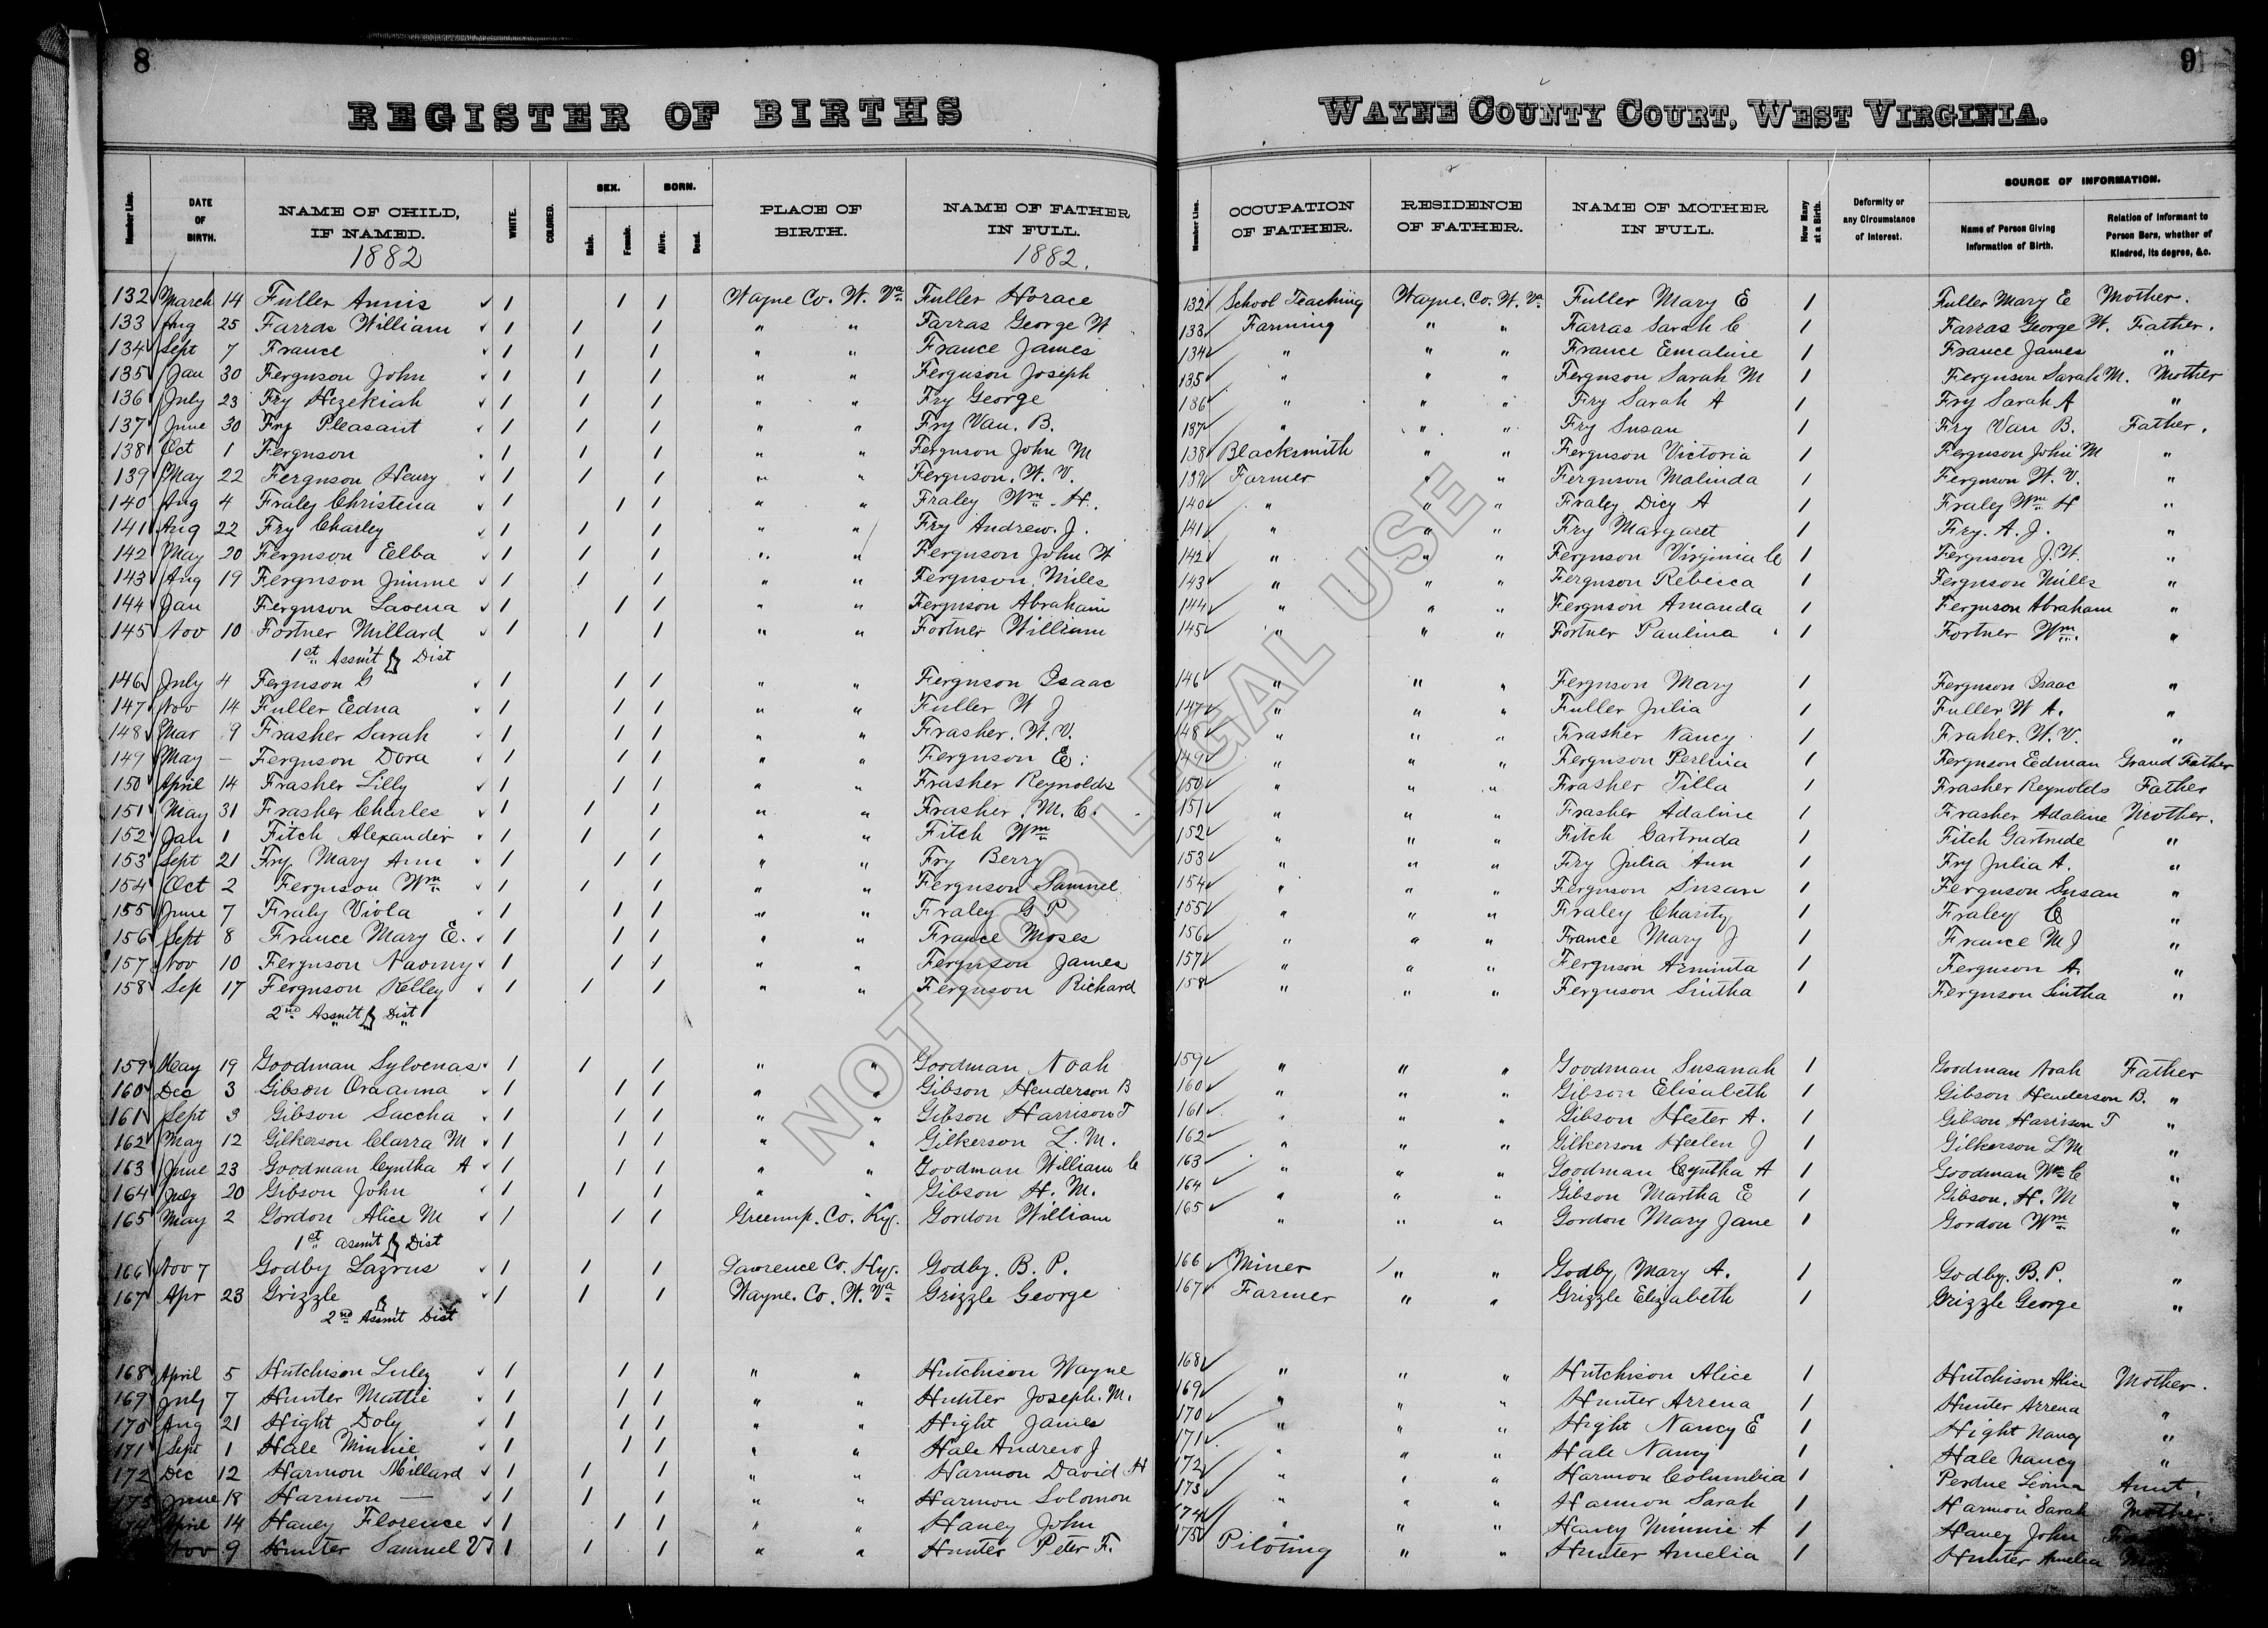 8
REGISTER OF BIRTHS
Number Line. DATE OF BIRTH. NAME OF CHILD, IF NAMED. WHITE. COLORED. SEX. Male. Female. BORN. Alive. Dead. PLACE OF BIRTH. NAME OF FATHER IN FULL.
1882 1882.
132 March 14 Fuller Annis 1 1 1 Wayne Co. W. Va. Fuller Horace
133 Aug 25 Farras William 1 1 1 " " Farras George W
134 Sept 7 France 1 1 1 " " France James
135 Jan 30 Ferguson John 1 1 1 " " Ferguson Joseph
136 July 23 Fry Hezekiah 1 1 1 " " Fry George
137 June 30 Fry Pleasant 1 1 1 " " Fry Van. B.
138 Oct 1 Ferguson 1 1 1 " " Ferguson John M
139 May 22 Ferguson Henry 1 1 1 " " Ferguson. W. V.
140 Aug 4 Fraley Christena 1 1 1 " " Fraley Wm. H.
141 Aug 22 Fry Charley 1 1 1 " " Fry Andrew. J.
142 May 20 Ferguson Elba 1 1 1 " " Ferguson John W
143 Aug 19 Ferguson Jimme 1 1 1 " " Ferguson Miles
144 Jan Ferguson Lavena 1 1 1 " " Ferguson Abraham
145 Nov 10 Fortner Millard 1 1 1 " " Fortner William
1st Assm't Dist
146 July 4 Ferguson G 1 1 1 " " Ferguson Isaac
147 Nov 14 Fuller Eedna 1 1 1 " " Fuller W J
148 Mar 9 Frasher Sarah 1 1 1 " " Frasher. W. V.
149 May – Ferguson Dora 1 1 1 " " Ferguson E.
150 April 14 Frasher Lilly 1 1 1 " " Frasher Reynolds
151 May 31 Frasher Charles 1 1 1 " " Frasher. M. C.
152 Jan 1 Fitch Alexander 1 1 1 " " Fitch Wm
153 Sept 21 Fry Mary Ann 1 1 1 " " Fry Berry
154 Oct 2 Ferguson Wm 1 1 1 " " Ferguson Samuel
155 June 7 Fraly Viola 1 1 1 " " Fraley G P
156 Sept 8 France Mary E. 1 1 1 " " France Moses
157 Nov 10 Ferguson Naomy 1 1 1 " " Ferguson James
158 Sep 17 Ferguson Kelley 1 1 1 " " Ferguson Richard
2nd Assm't Dist
159 May 19 Goodman Sylvenas 1 1 1 " " Goodman Noah
160 Dec 3 Gibson Oraanna 1 1 1 " " Gibson Henderson B
161 Sept 3 Gibson Saccha 1 1 1 " " Gibson Harrison T
162 May 12 Gilkerson Clarra M 1 1 1 " " Gilkerson L. M.
163 June 23 Goodman Cyntha A 1 1 1 " " Goodman William C
164 July 20 Gibson John 1 1 1 " " Gibson H. M.
165 May 2 Gordon Alice M 1 1 1 Greenup. Co. Ky. Gordon William
1st assmt Dist
166 Nov 7 Godby Lazrus 1 1 1 Lawrence Co. Ky. Godby. B. P.
167 Apr 23 Grizzle 1 1 1 Wayne. Co. W. Va Grizzle George
2nd Assm't Dist
168 April 5 Hutchison Luley 1 1 1 " " Hutchison Wayne
169 July 7 Hunter Mattie 1 1 1 " " Hunter Joseph. M.
170 Aug 21 Hight Doly 1 1 1 " " Hight James
171 Sept 1 Hale Minnie 1 1 1 " " Hale Andrew J
172 Dec 12 Harmon Millard 1 1 1 " " Harmon David H
173 June 18 Harmon — 1 1 1 " " Harmon Solomon
April 14 Haney Florence 1 1 1 " " Haney John
Nov 9 Hunter Samuel 1 1 1 " " Hunter Peter F.
9
WAYNE COUNTY COURT, WEST VIRGINIA.
Number Line. OCCUPATION OF FATHER. RESIDENCE OF FATHER. NAME OF MOTHER IN FULL. How Many at a Birth. Deformity or any Circumstance of Interest. SOURCE OF INFORMATION. Name of Person Giving Information of Birth. Relation of Informant to Person Born, whether of Kindred, its degree, &c.
132 School Teaching Wayne. Co. W. Va. Fuller Mary E 1 Fuller Mary E Mother.
133 Farming " " Farras Sarah C 1 Farras George W. Father.
134 " " " France Emaline 1 France James "
135 " " " Ferguson Sarah M 1 Ferguson Sarah M. Mother
136 " " " Fry Sarah A 1 Fry Sarah A "
137 " " " Fry Susan 1 Fry Van B. Father.
138 Blacksmith " " Ferguson Victoria 1 Ferguson John M "
139 Farmer " " Ferguson Malinda 1 Ferguson W. V. "
140 " " " Fraley Dicy A 1 Fraley Wm H "
141 " " " Fry Margaret 1 Fry. A. J. "
142 " " " Ferguson Virginia C 1 Ferguson J. W. "
143 " " " Ferguson Rebecca 1 Ferguson Miles "
144 " " " Ferguson Amanda 1 Ferguson Abraham "
145 " " " Fortner Paulina 1 Fortner Wm. "
146 " " " Ferguson Mary 1 Ferguson Isaac "
147 " " " Fuller Julia 1 Fuller W A. "
148 " " " Frasher Nancy 1 Fraher. W. V. "
149 " " " Ferguson Perlina 1 Ferguson Eedman Grand Father
150 " " " Frasher Tilla 1 Frasher Reynolds Father
151 " " " Frasher Adaline 1 Frasher Adaline Mother.
152 " " " Fitch Gartruda 1 Fitch Gartrude "
153 " " " Fry Julia Ann 1 Fry Julia A. "
154 " " " Ferguson Susan 1 Ferguson Susan "
155 " " " Fraley Charity 1 Fraley C "
156 " " " France Mary J 1 France M J "
157 " " " Ferguson Arminta 1 Ferguson A. "
158 " " " Ferguson Sintha 1 Ferguson Sintha "
159 " " " Goodman Susanah 1 Goodman Noah Father
160 " " " Gibson Elisabeth 1 Gibson Henderson B. "
161 " " " Gibson Hester A. 1 Gibson Harrison T "
162 " " " Gilkerson Heelen J 1 Gilkerson L M "
163 " " " Goodman Cyntha A 1 Goodman Wm C "
164 " " " Gibson Martha E 1 Gibson. H. M "
165 " " " Gordon Mary Jane 1 Gordon Wm "
166 Miner " " Godby Mary A. 1 Godby. B. P. "
167 Farmer " " Grizzle Elizabeth 1 Grizzle George "
168 " " " Hutchison Alice 1 Hutchison Alice Mother.
169 " " " Hunter Arrena 1 Hunter Arrena "
170 " " " Hight Nancy E 1 Hight Nancy "
171 " " " Hale Nancy 1 Hale Nancy "
172 " " " Harmon Columbia 1 Perdue Aunt.
173 " " " Harmon Sarah 1 Harmon Sarah Mother.
174 " " " Haney Minnie A 1 Haney John
175 Piloting " " Hunter Amelia 1 Hunter Amelia
NOT FOR LEGAL USE